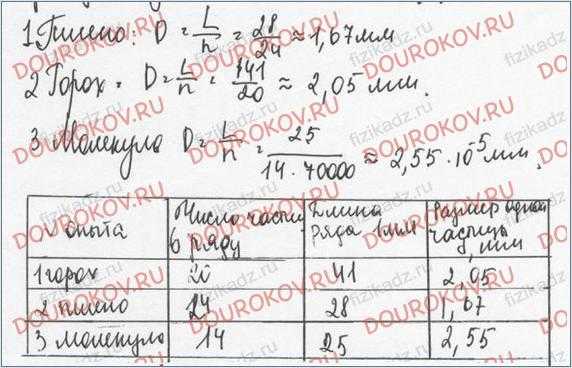 1 Пшено: D = L/n = 28/24 ≈ 1,67мм
2 Горох = D = L/n = 141/20 ≈ 2,05 мм.
3 Молекула D = L/n = 25/14·70000 ≈ 2,55·10⁻⁵ мм.
опыта | Число частиц в ряду | Длина ряда 1мм | Размер одной частицы, мм
1 горох | 20 | 41 | 2,05
2 пшено | 24 | 28 | 1,67
3 молекула | 14 | 25 | 2,55
DOUROKOV.RU
fizikadz.ru